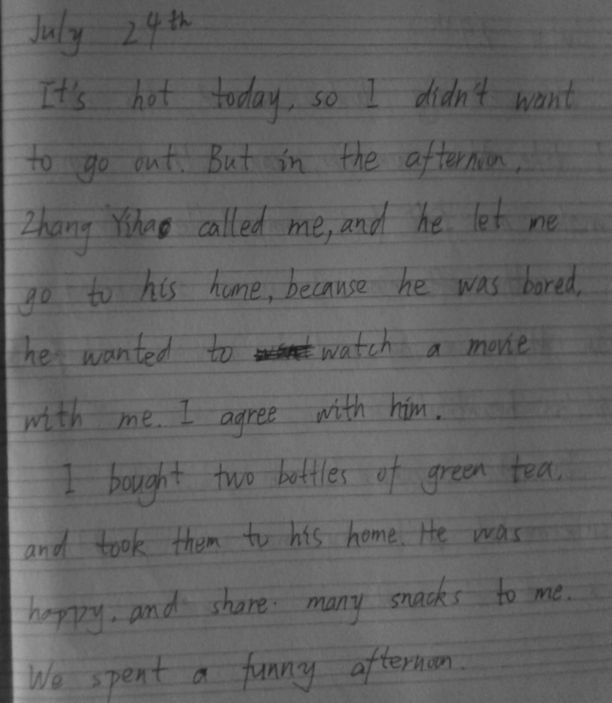 July 24th
It's hot today, so I didn't want
to go out. But in the afternoon,
Zhang Yihao called me, and he let me
go to his home, because he was bored,
he wanted to watch a movie
with me. I agree with him.
I bought two bottles of green tea,
and took them to his home. He was
happy, and share many snacks to me.
We spent a funny afternoon.